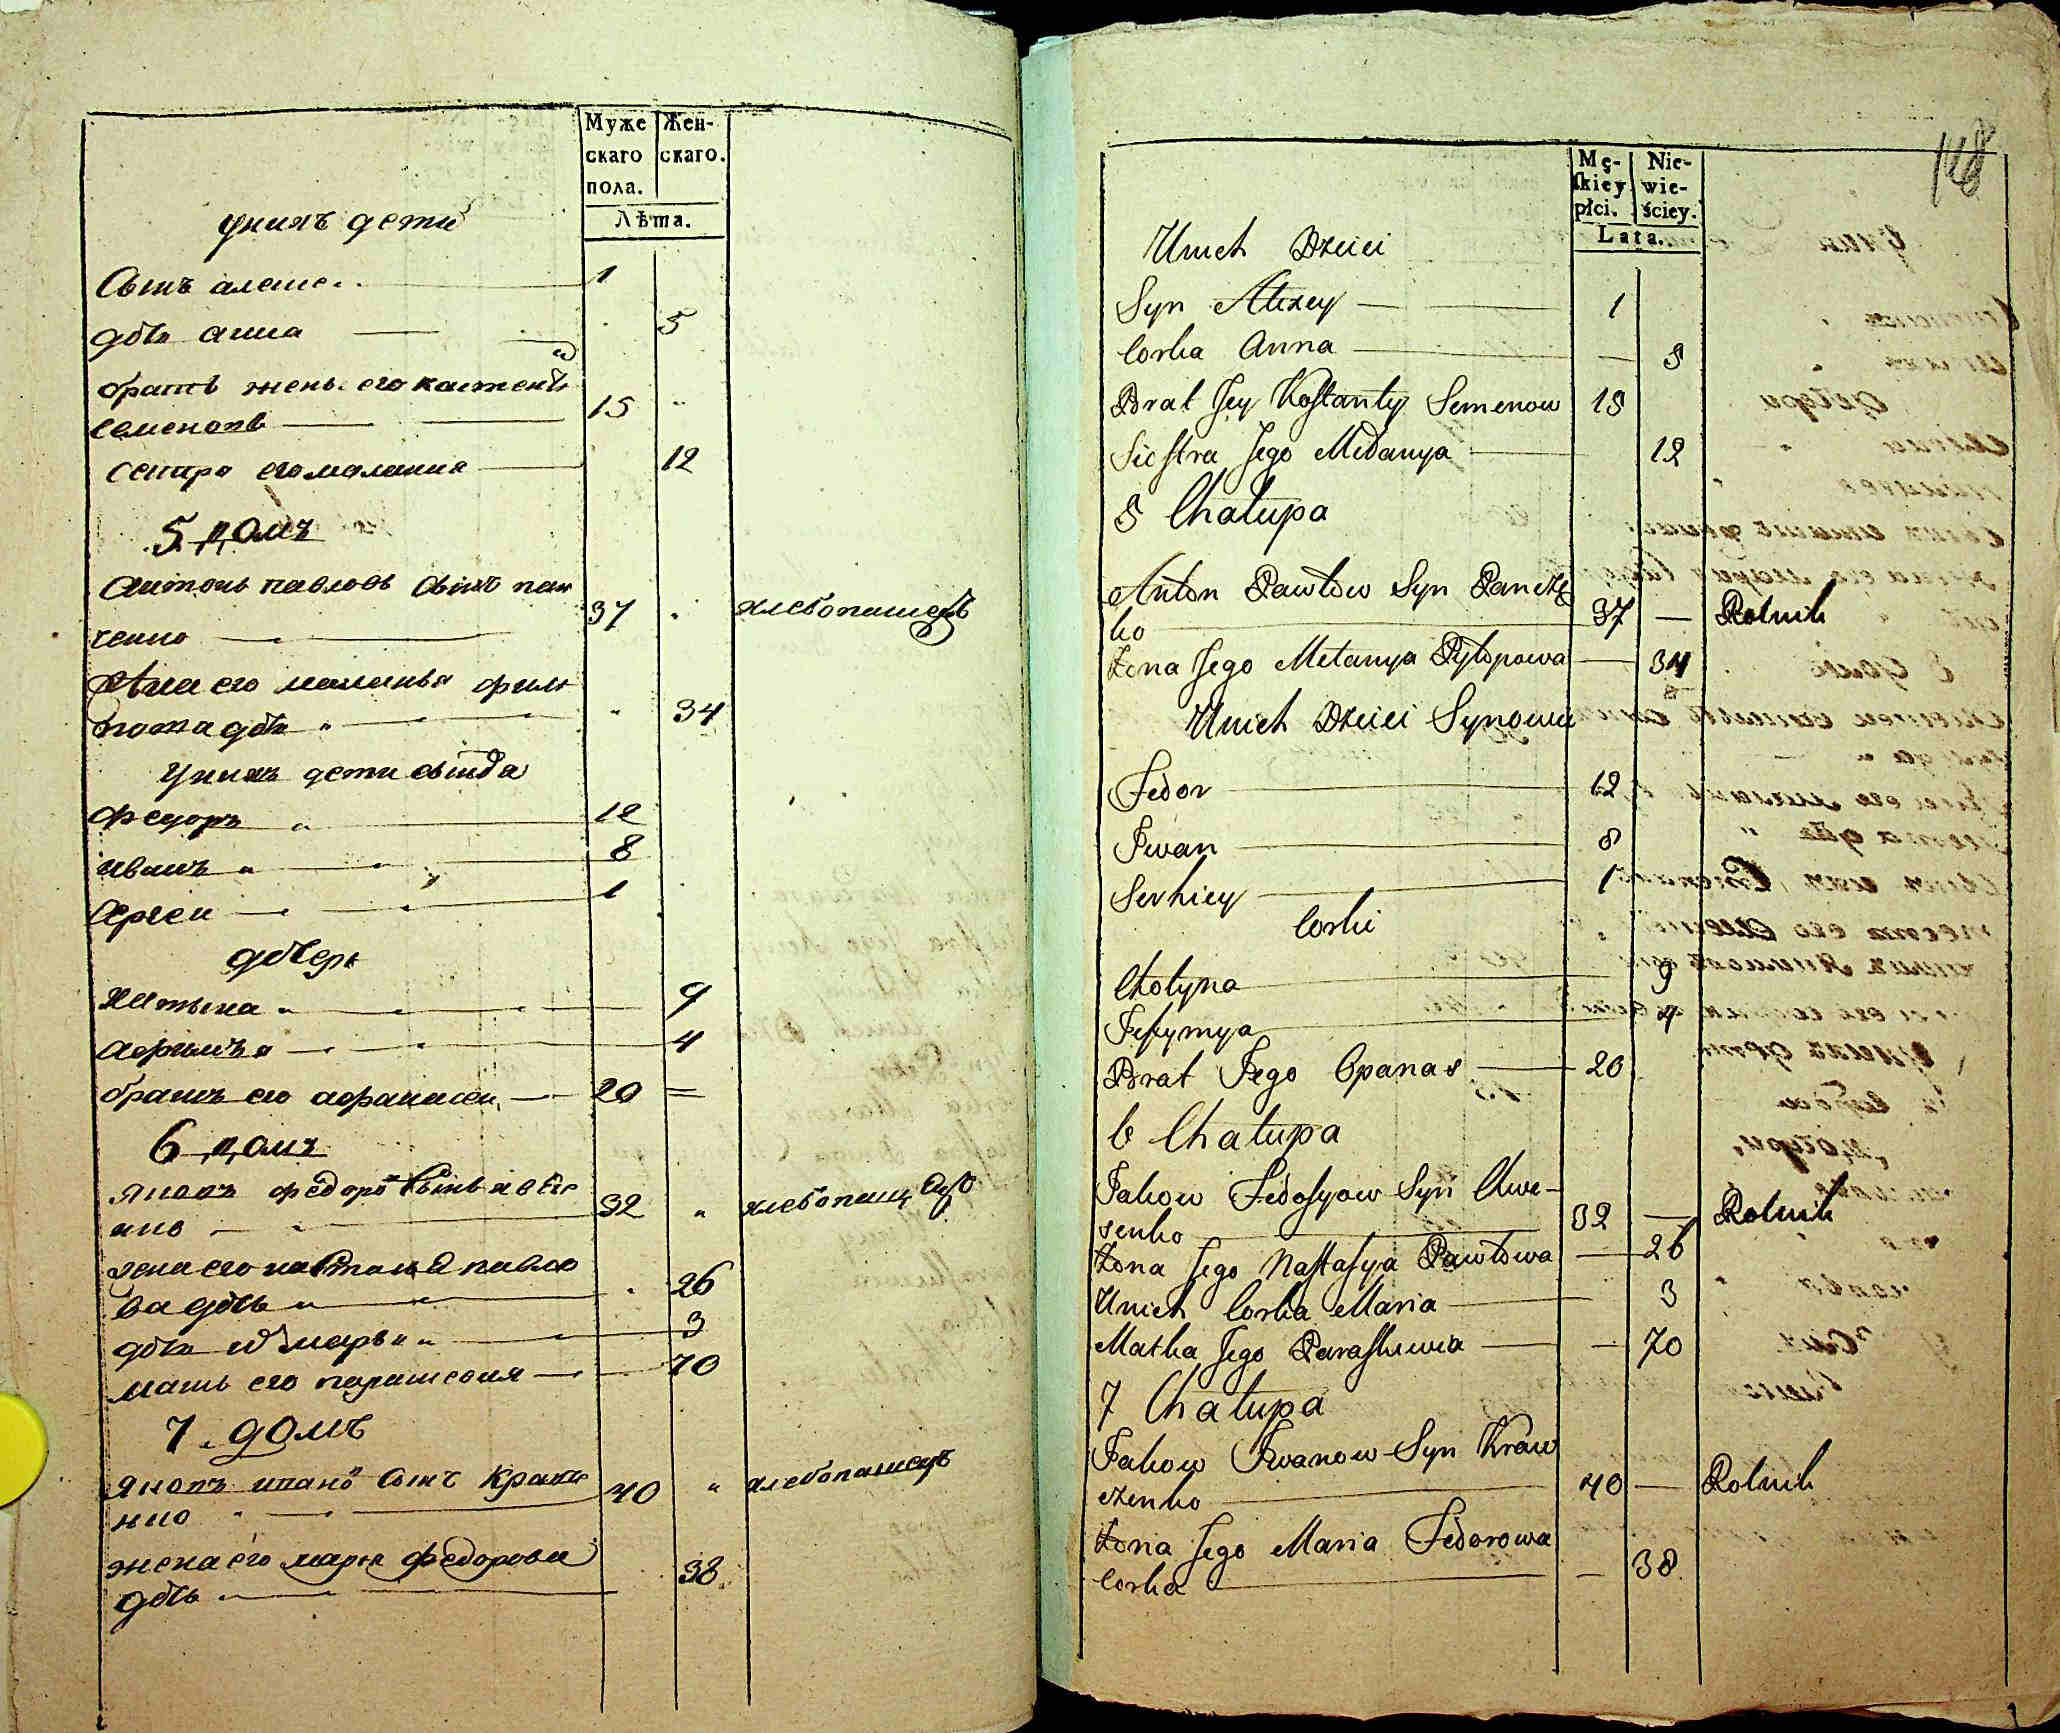 Муже
скаго
пола.
Жен-
скаго.
Лѣта.
унихъ дети
Сынъ алексе. 1
дочь анна 5
братъ жены его костенти
семеновъ 15
сестра его малания 12
5 домъ
Антонъ павловъ сынъ пан
ченко 37 хлебопашецъ
жена его маланья фили
пова дочь 34
унихъ дети сынова
федоръ 12
иванъ 8
сергеи 1
дочери
хатына 9
афимья 4
братъ его афанасеи 20
6 домъ
яковъ федоровъ сынъ
32 хлебопашецъ
жена его настасья павло
ва дочь 26
дочь марья 3
мать его парасковия 70
7 домъ
яковъ ивановъ сынъ Кравче
нко 40 хлебопашецъ
жена его марья федорова
дочь 38
148
Mę-
skiey
płci.
Nie-
wie-
ściey.
Lata.
Unich Dzieci
Syn Alexey 1
Corka Anna 5
Brat Jey Kostanty Semenow 15
Siostra Jego Melanya 12
5 Chałupa
Anton Pawłow Syn Pancze
ko 37 — Rolnik
Żona Jego Melanya Pylypowa 34
Unich Dzieci Synowie
Fedor 12
Iwan 8
Serhiey 1
Corki
Chotyna 9
Jefymya 4
Brat Jego Opanas 20
6 Chałupa
Jakow Fedosyow Syn Awe-
senko 32 — Rolnik
Żona Jego Nastasya Pawłowa 26
Unich Corka Maria 3
Matka Jego Paraskiewia 70
7 Chałupa
Jakow Iwanow Syn Kraw
czenko 40 — Rolnik
Żona Jego Maria Fedorowa
Corka 38